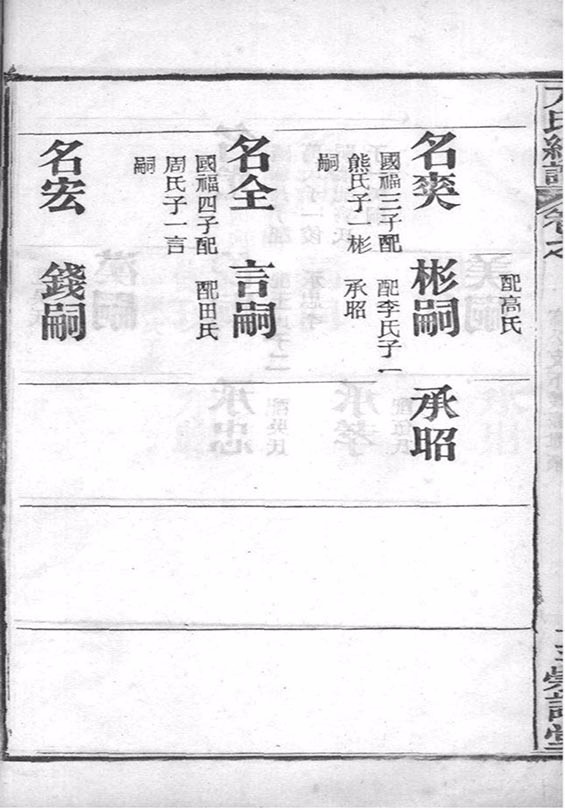 配高氏
名奕 彬嗣 承昭
國福三子配 配李氏子一
熊氏子一彬 承昭
嗣
名全 言嗣
國福四子配 配田氏
周氏子一言
嗣
名宏 錢嗣